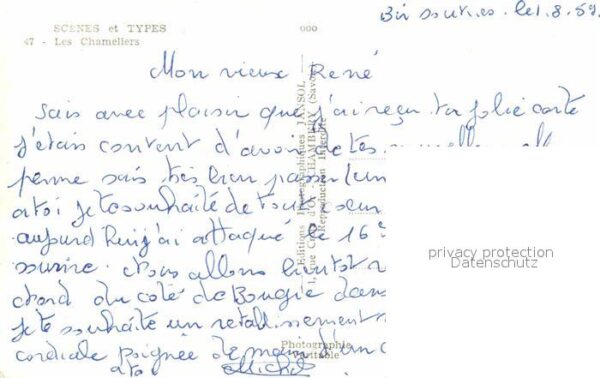 SCENES et TYPES
47 - Les Chaméliers
000
Bir souries . le 1.8.59.
Mon vieux René
sais avec plaisir que j'ai reçu ta jolie carte
j'étais content d'avoir de tes
perme sais très bien passer
a toi je te souhaite de tout
aujourd'hui j'ai attaqué le 16e
sourire. Nous allons bientôt
du coté de Bougie dans
je te souhaite un retablissement
cordiale poignée de main d'un
a toi Michel
Editions Photographiques JANSOL
1, Rue Croix d'Or - CHAMBERY (Savoie)
Reproduction Interdite
Photographie
Véritable
privacy protection
Datenschutz